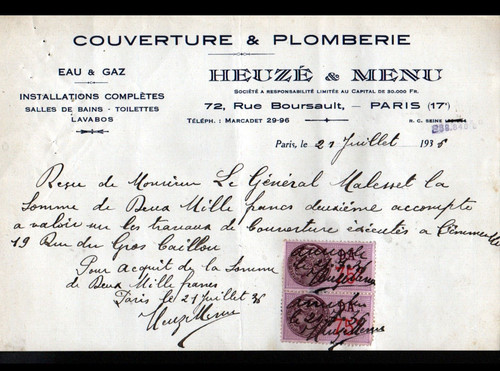 COUVERTURE & PLOMBERIE
EAU & GAZ
INSTALLATIONS COMPLÈTES
SALLES DE BAINS - TOILETTES
LAVABOS
HEUZÉ & MENU
SOCIÉTÉ A RESPONSABILITÉ LIMITÉE AU CAPITAL DE 50.000 FR.
72, Rue Boursault, — PARIS (17e)
TÉLÉPH. : MARCADET 29-96
R. C. SEINE
Paris, le 21 Juillet 1936
Reçu de Monsieur Le Général Malesset la
Somme de Deux Mille francs deuxième accompte
a valoir sur les travaux de Couverture éxécutés a
19 Rue du Gros Caillou
Pour acquit de la Somme
de Deux Mille francs
Paris le 21 Juillet 36
Heuzé Menu